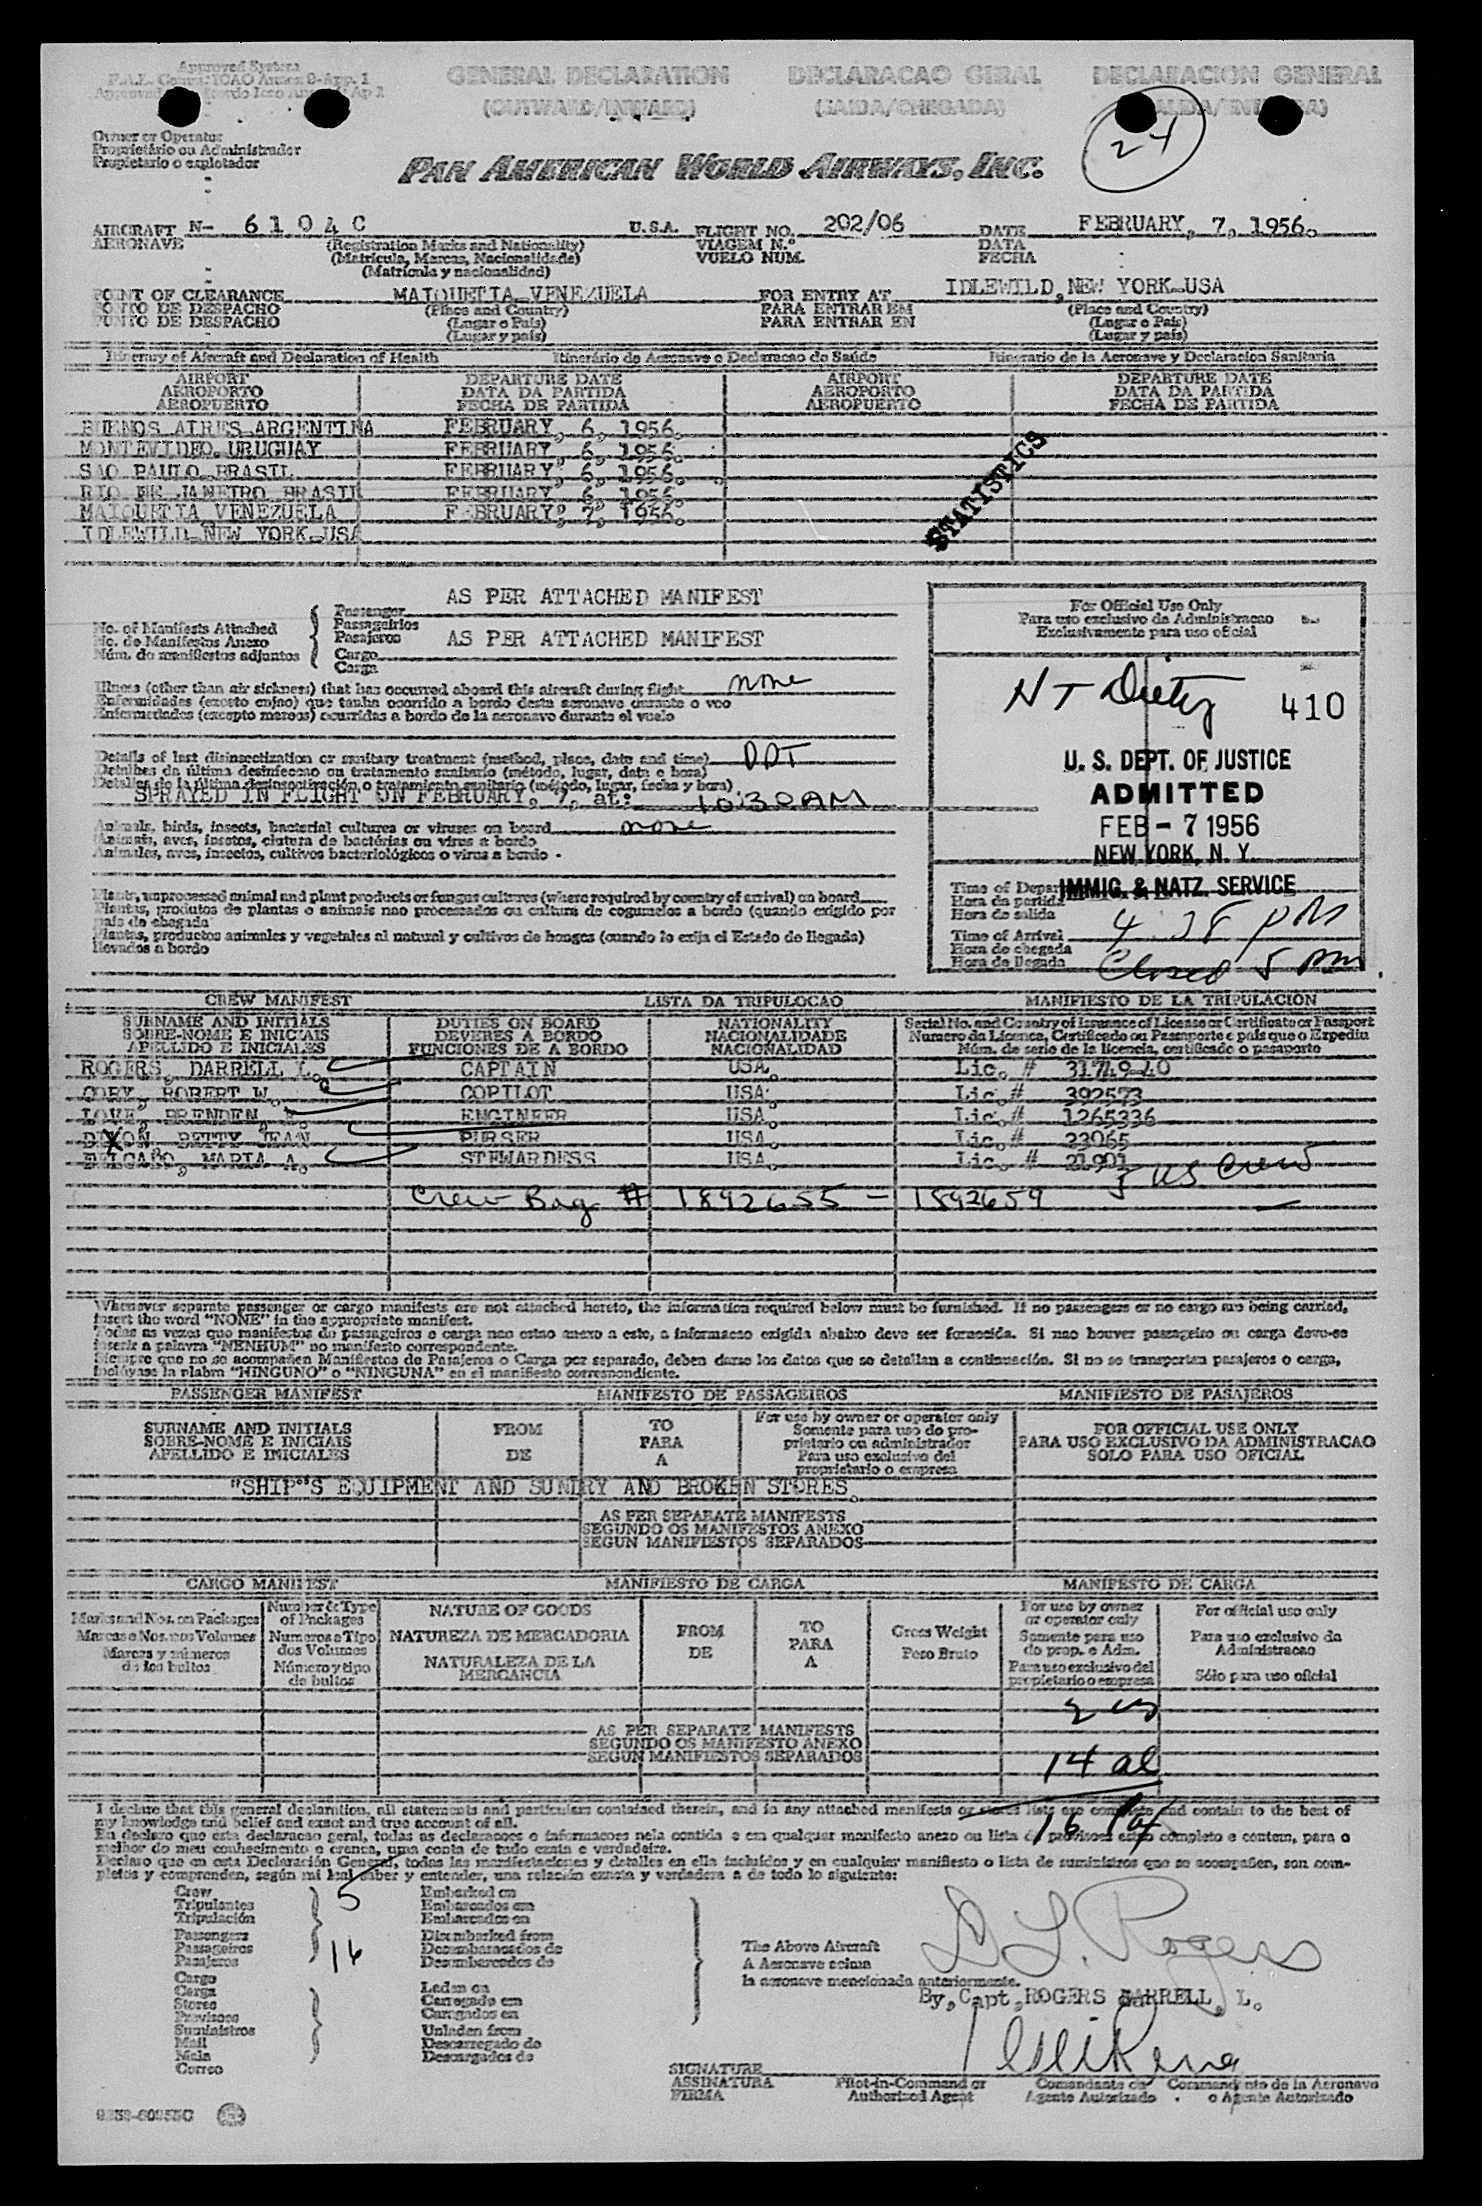 Approved System
F.A.L. Conv. ICAO Annex 9-App. 1
GENERAL DECLARATION DECLARACAO GERAL DECLARACION GENERAL
(OUTWARD/INWARD) (SAIDA/CHEGADA)
24
Owner or Operator
Proprietário ou Administrador
Propietario o explotador
PAN AMERICAN WORLD AIRWAYS, INC.
AIRCRAFT N- 6 1 0 4 C U.S.A. FLIGHT NO. 202/06 DATE FEBRUARY, 7, 1956.
AERONAVE (Registration Marks and Nationality) VIAGEM N.º DATA
(Matricula, Marcas, Nacionalidade) VUELO NUM. FECHA
(Matrícula y nacionalidad)
POINT OF CLEARANCE MAIQUETIA VENEZUELA FOR ENTRY AT IDLEWILD, NEW YORK USA
PONTO DE DESPACHO (Place and Country) PARA ENTRAR EM (Place and Country)
PUNTO DE DESPACHO (Lugar o País) PARA ENTRAR EN (Lugar o País)
(Lugar y país) (Lugar y país)
Itinerary of Aircraft and Declaration of Health Itinerário de Aeronave e Declaracao de Saúde Itinerario de la Aeronave y Declaracion Sanitaria
AIRPORT DEPARTURE DATE AIRPORT DEPARTURE DATE
AEROPORTO DATA DA PARTIDA AEROPORTO DATA DA PARTIDA
AEROPUERTO FECHA DE PARTIDA AEROPUERTO FECHA DE PARTIDA
BUENOS AIRES ARGENTINA FEBRUARY, 6, 1956.
MONTEVIDEO. URUGUAY FEBRUARY, 6, 1956.
SAO PAULO BRASIL FEBRUARY, 6, 1956.
RIO DE JANEIRO BRASIL FEBRUARY, 6, 1956.
MAIQUETIA VENEZUELA FEBRUARY, 7, 1956.
IDLEWILD NEW YORK USA
STATISTICS
AS PER ATTACHED MANIFEST
Passenger
No. of Manifests Attached Passageirios
No. de Manifestos Anexo Pasajeros AS PER ATTACHED MANIFEST
Núm. de manifiestos adjuntos Cargo
Carga
For Official Use Only
Para uso exclusivo da Administracao
Exclusivamente para uso oficial
Illness (other than air sickness) that has occurred aboard this aircraft during flight none
Enfermidades (exceto enjoo) que tenha ocorrido a bordo desta aeronave durante o voo
Enfermedades (excepto mareos) ocurridas a bordo de la aeronave durante el vuelo
N T Dietz 410
Details of last disinsectization or sanitary treatment (method, place, date and time) DDT
Detalhes da última desinfeccao ou tratamento sanitario (método, lugar, data e hora)
Detalles de la última desinsectización o tratamiento sanitario (método, lugar, fecha y hora)
SPRAYED IN FLIGHT ON FEBRUARY, 7, at: 10:30 AM
U. S. DEPT. OF JUSTICE
ADMITTED
FEB - 7 1956
NEW YORK, N. Y.
IMMIG. & NATZ. SERVICE
Animals, birds, insects, bacterial cultures or viruses on board none
Animais, aves, insetos, cultura de bactérias ou virus a bordo
Animales, aves, insectos, cultivos bacteriológicos o virus a bordo
Plants, unprocessed animal and plant products or fungus cultures (where required by country of arrival) on board
Plantas, produtos de plantas e animais nao processados ou cultura de cogumelos a bordo (quando exigido por
país de chegada
Plantas, productos animales y vegetales al natural y cultivos de hongos (cuando lo exija el Estado de llegada)
llevados a bordo
Time of Depar
Hora da partida
Hora de salida
Time of Arrival 4 28 PM
Hora de chegada
Hora de llegada Closed 5 PM
CREW MANIFEST LISTA DA TRIPULOCAO MANIFIESTO DE LA TRIPULACION
SURNAME AND INITIALS DUTIES ON BOARD NATIONALITY Serial No. and Country of Issuance of License or Certificate or Passport
SOBRE-NOME E INICIAIS DEVERES A BORDO NACIONALIDADE Numero da Licenca, Certificado ou Passaporte e país que o Expediu
APELLIDO E INICIALES FUNCIONES DE A BORDO NACIONALIDAD Núm. de serie de la licencia, certificado o pasaporte
ROGERS, DARRELL L. CAPTAIN USA. Lic. # 31749-40
CORY, ROBERT W. COPILOT USA. Lic. # 392573
LOVE, BRENDEN, ENGINEER USA. Lic. # 1265336
DIXON BETTY JEAN PURSER USA. Lic. # 23065
DELGADO, MARIA A. STEWARDESS USA. Lic. # 21901
5 US Crew
Crew Bag # 1892655 - 1892659
Whenever separate passenger or cargo manifests are not attached hereto, the information required below must be furnished. If no passengers or no cargo are being carried,
insert the word "NONE" in the appropriate manifest.
Todas as vezes que manifestos de passageiros e carga nao estao anexo a este, a informacao exigida abaixo deve ser fornecida. Si nao houver passageiro ou carga deve-se
inserir a palavra "NENHUM" no manifesto correspondente.
Siempre que no se acompañen Manifiestos de Pasajeros o Carga por separado, deben darse los datos que se detallan a continuación. Si no se transportan pasajeros o carga,
inclúyase la plabra "NINGUNO" o "NINGUNA" en el manifiesto correspondiente.
PASSENGER MANIFEST MANIFESTO DE PASSAGEIROS MANIFIESTO DE PASAJEROS
SURNAME AND INITIALS FROM TO For use by owner or operator only FOR OFFICIAL USE ONLY
SOBRE-NOME E INICIAIS DE PARA Somente para uso do proprietario ou administrador PARA USO EXCLUSIVO DA ADMINISTRACAO
APELLIDO E INICIALES A Para uso exclusivo del proprietario o empresa SOLO PARA USO OFICIAL
"SHIP"S EQUIPMENT AND SUNDRY AND BROKEN STORES.
AS PER SEPARATE MANIFESTS
SEGUNDO OS MANIFESTOS ANEXO
SEGUN MANIFIESTOS SEPARADOS
CARGO MANIFEST MANIFIESTO DE CARGA MANIFESTO DE CARGA
Marks and Nos. on Packages Number & Type of Packages NATURE OF GOODS FROM TO Gross Weight For use by owner or operator only For official use only
Marcas e Nos. nos Volumes Numeros e Tipo dos Volumes NATUREZA DE MERCADORIA DE PARA Peso Bruto Somente para uso do prop. e Adm. Para uso exclusivo da Administracao
Marcas y números de los bultos Número y tipo de bultos NATURALEZA DE LA MERCANCIA A Para uso exclusivo del propietario o empresa Sólo para uso oficial
2 cs
AS PER SEPARATE MANIFESTS
SEGUNDO OS MANIFESTO ANEXO
SEGUN MANIFIESTOS SEPARADOS
14 al
16
I declare that this general declaration, all statements and particulars contained therein, and in any attached manifests or stores lists are complete and contain to the best of
my knowledge and belief and exact and true account of all.
En declaro que esta declaracao geral, todas as declaracoes e informacoes nela contida e em qualquer manifesto anexo ou lista de provisoes estao completo e contem, para o
melhor do meu conhecimento e crenca, uma conta de tudo exata e verdadeira.
Declaro que en esta Declaración General, todas las manifestaciones y detalles en ella incluídos y en cualquier manifiesto o lista de suministros que se acompañen, son completos y comprenden, según mi leal saber y entender, una relación exacta y verdadera a de todo lo siguiente:
Crew 5 Embarked on
Tripulantes Embarcados em
Tripulación Embarcados en
Passengers Disembarked from
Passageiros 16 Desembarcados de
Pasajeros Desembarcados de
Cargo
Carga Laden on
Stores Carregado em
Provisoes Cargados en
Suministros Unladen from
Mail Descarregado de
Mala Descargados de
Correo
The Above Aircraft
A Aeronave acima
la aeronave mencionada anteriormente.
D L. Rogers
By, Capt, ROGERS DARRELL, L.
SIGNATURE
ASSINATURA Pilot-in-Command or Comandante de Commandante de la Aeronave
FIRMA Authorized Agent Agente Autorizado o Agente Autorizado